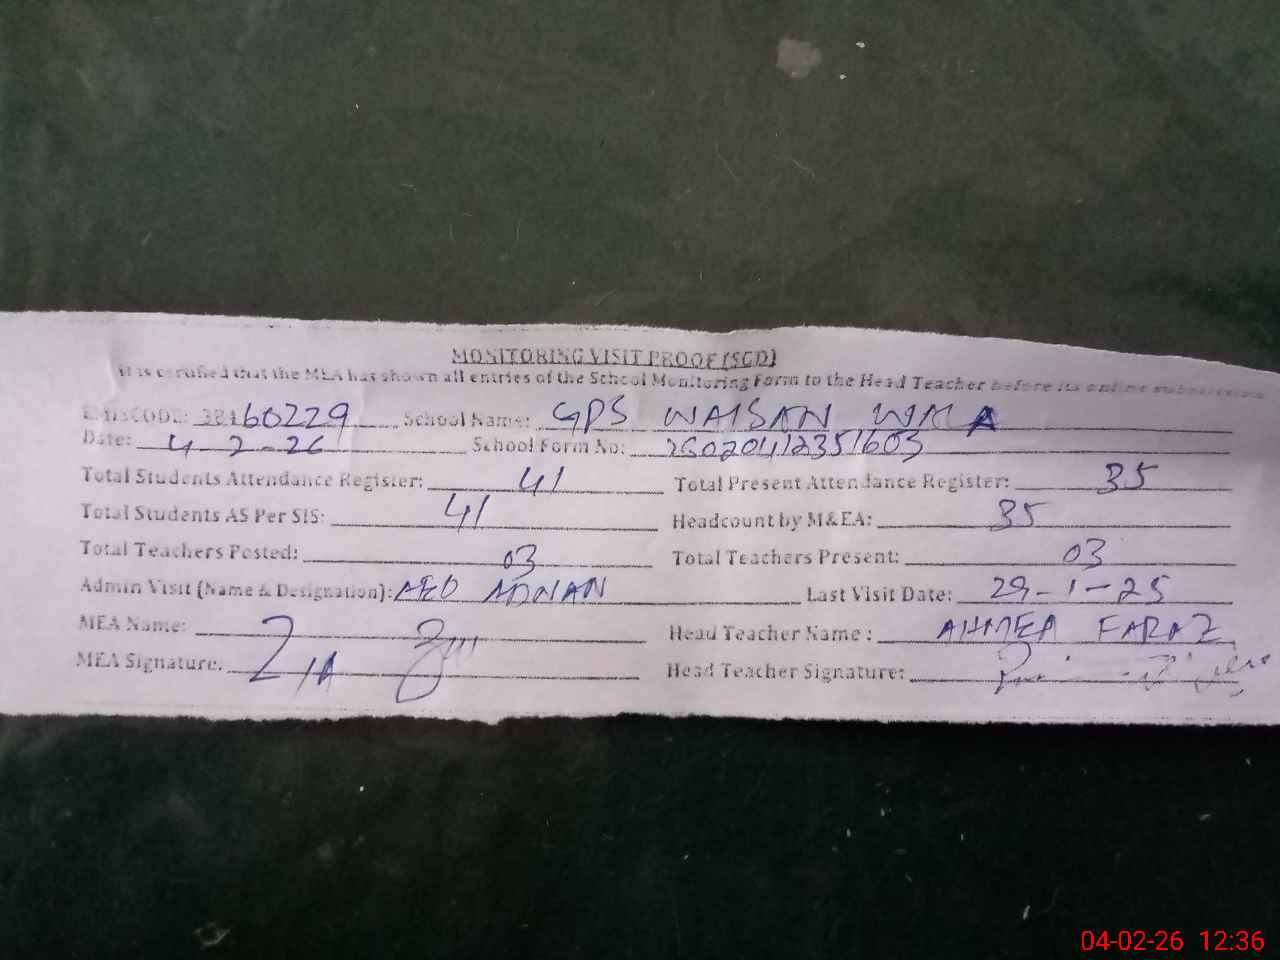 MONITORING VISIT PROOF (SGD)
It is certified that the MEA has shown all entries of the School Monitoring Form to the Head Teacher before its online submission
EMISCODE: 38460229 School Name: GPS WAISAN WALA
Date: 4-2-26 School Form No: 26020412351603
Total Students Attendance Register: 41 Total Present Attendance Register: 35
Total Students AS Per SIS: 41 Headcount by M&EA: 35
Total Teachers Posted: 03 Total Teachers Present: 03
Admin Visit (Name & Designation): AEO ADNAN Last Visit Date: 29-1-25
MEA Name: Head Teacher Name : AHMEA FARAZ
MEA Signature. Head Teacher Signature:
04-02-26 12:36